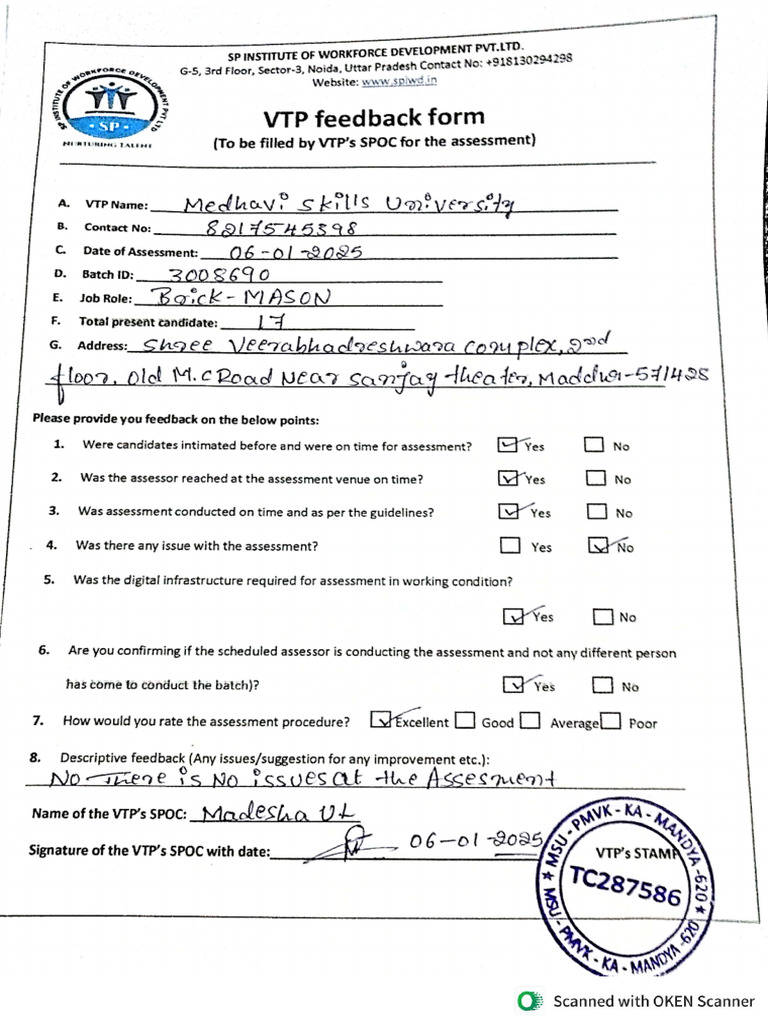 SP INSTITUTE OF WORKFORCE DEVELOPMENT PVT.LTD.
G-5, 3rd Floor, Sector-3, Noida, Uttar Pradesh Contact No: +918130294298
Website: www.spiwd.in
SP INSTITUTE OF WORKFORCE DEVELOPMENT PVT LTD
SP
NURTURING TALENT
VTP feedback form
(To be filled by VTP's SPOC for the assessment)
A. VTP Name: Medhavi Skills University
B. Contact No: 8217545398
C. Date of Assessment: 06-01-2025
D. Batch ID: 3008690
E. Job Role: Brick-MASON
F. Total present candidate: 17
G. Address: Shree Veerabhadreshwara complex, 2nd
floor, Old M.C Road Near Sanjay theater, Maddur-571428
Please provide you feedback on the below points:
1. Were candidates intimated before and were on time for assessment? Yes No
2. Was the assessor reached at the assessment venue on time? Yes No
3. Was assessment conducted on time and as per the guidelines? Yes No
4. Was there any issue with the assessment? Yes No
5. Was the digital infrastructure required for assessment in working condition?
Yes No
6. Are you confirming if the scheduled assessor is conducting the assessment and not any different person
has come to conduct the batch)? Yes No
7. How would you rate the assessment procedure? Excellent Good Average Poor
8. Descriptive feedback (Any issues/suggestion for any improvement etc.):
No There is No issues at the Assesment
Name of the VTP's SPOC: Madesha
Signature of the VTP's SPOC with date: 06-01-2025
VTP's STAMP
MSU - PMVK - KA - MANDYA -620
TC287586
MSU - PMVK - KA - MANDYA -620
Scanned with OKEN Scanner